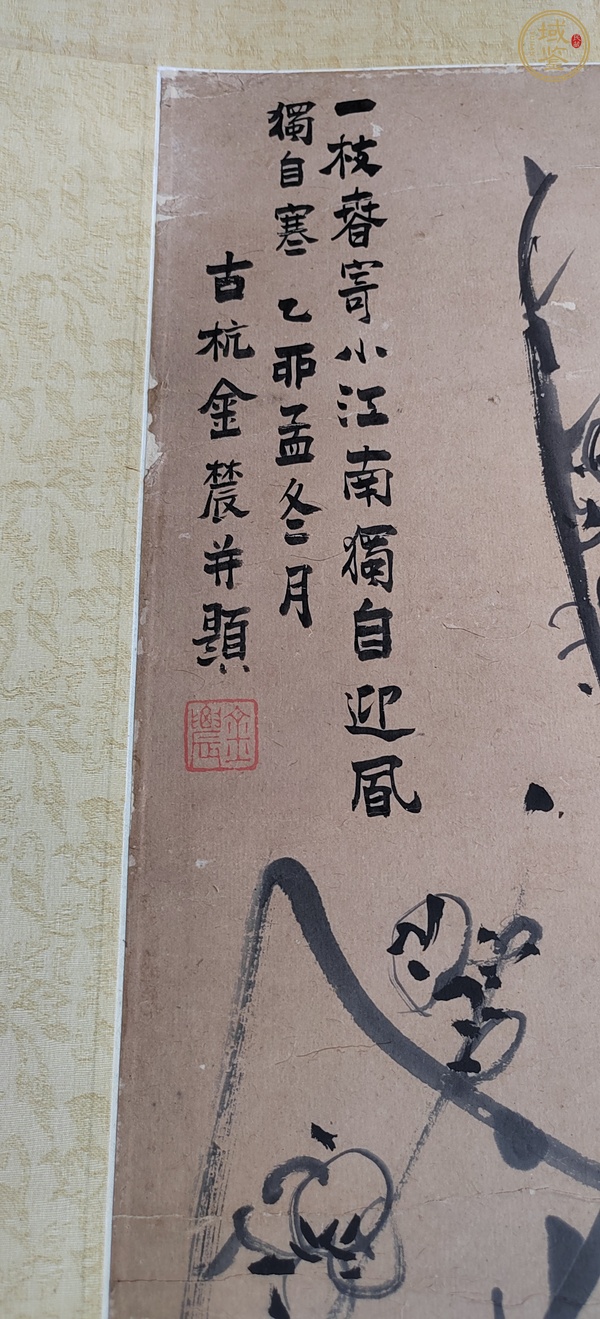 一枝春寄小江南獨自迎風
獨自寒 乙丣孟冬月
古杭金農并題
金農
域鉴